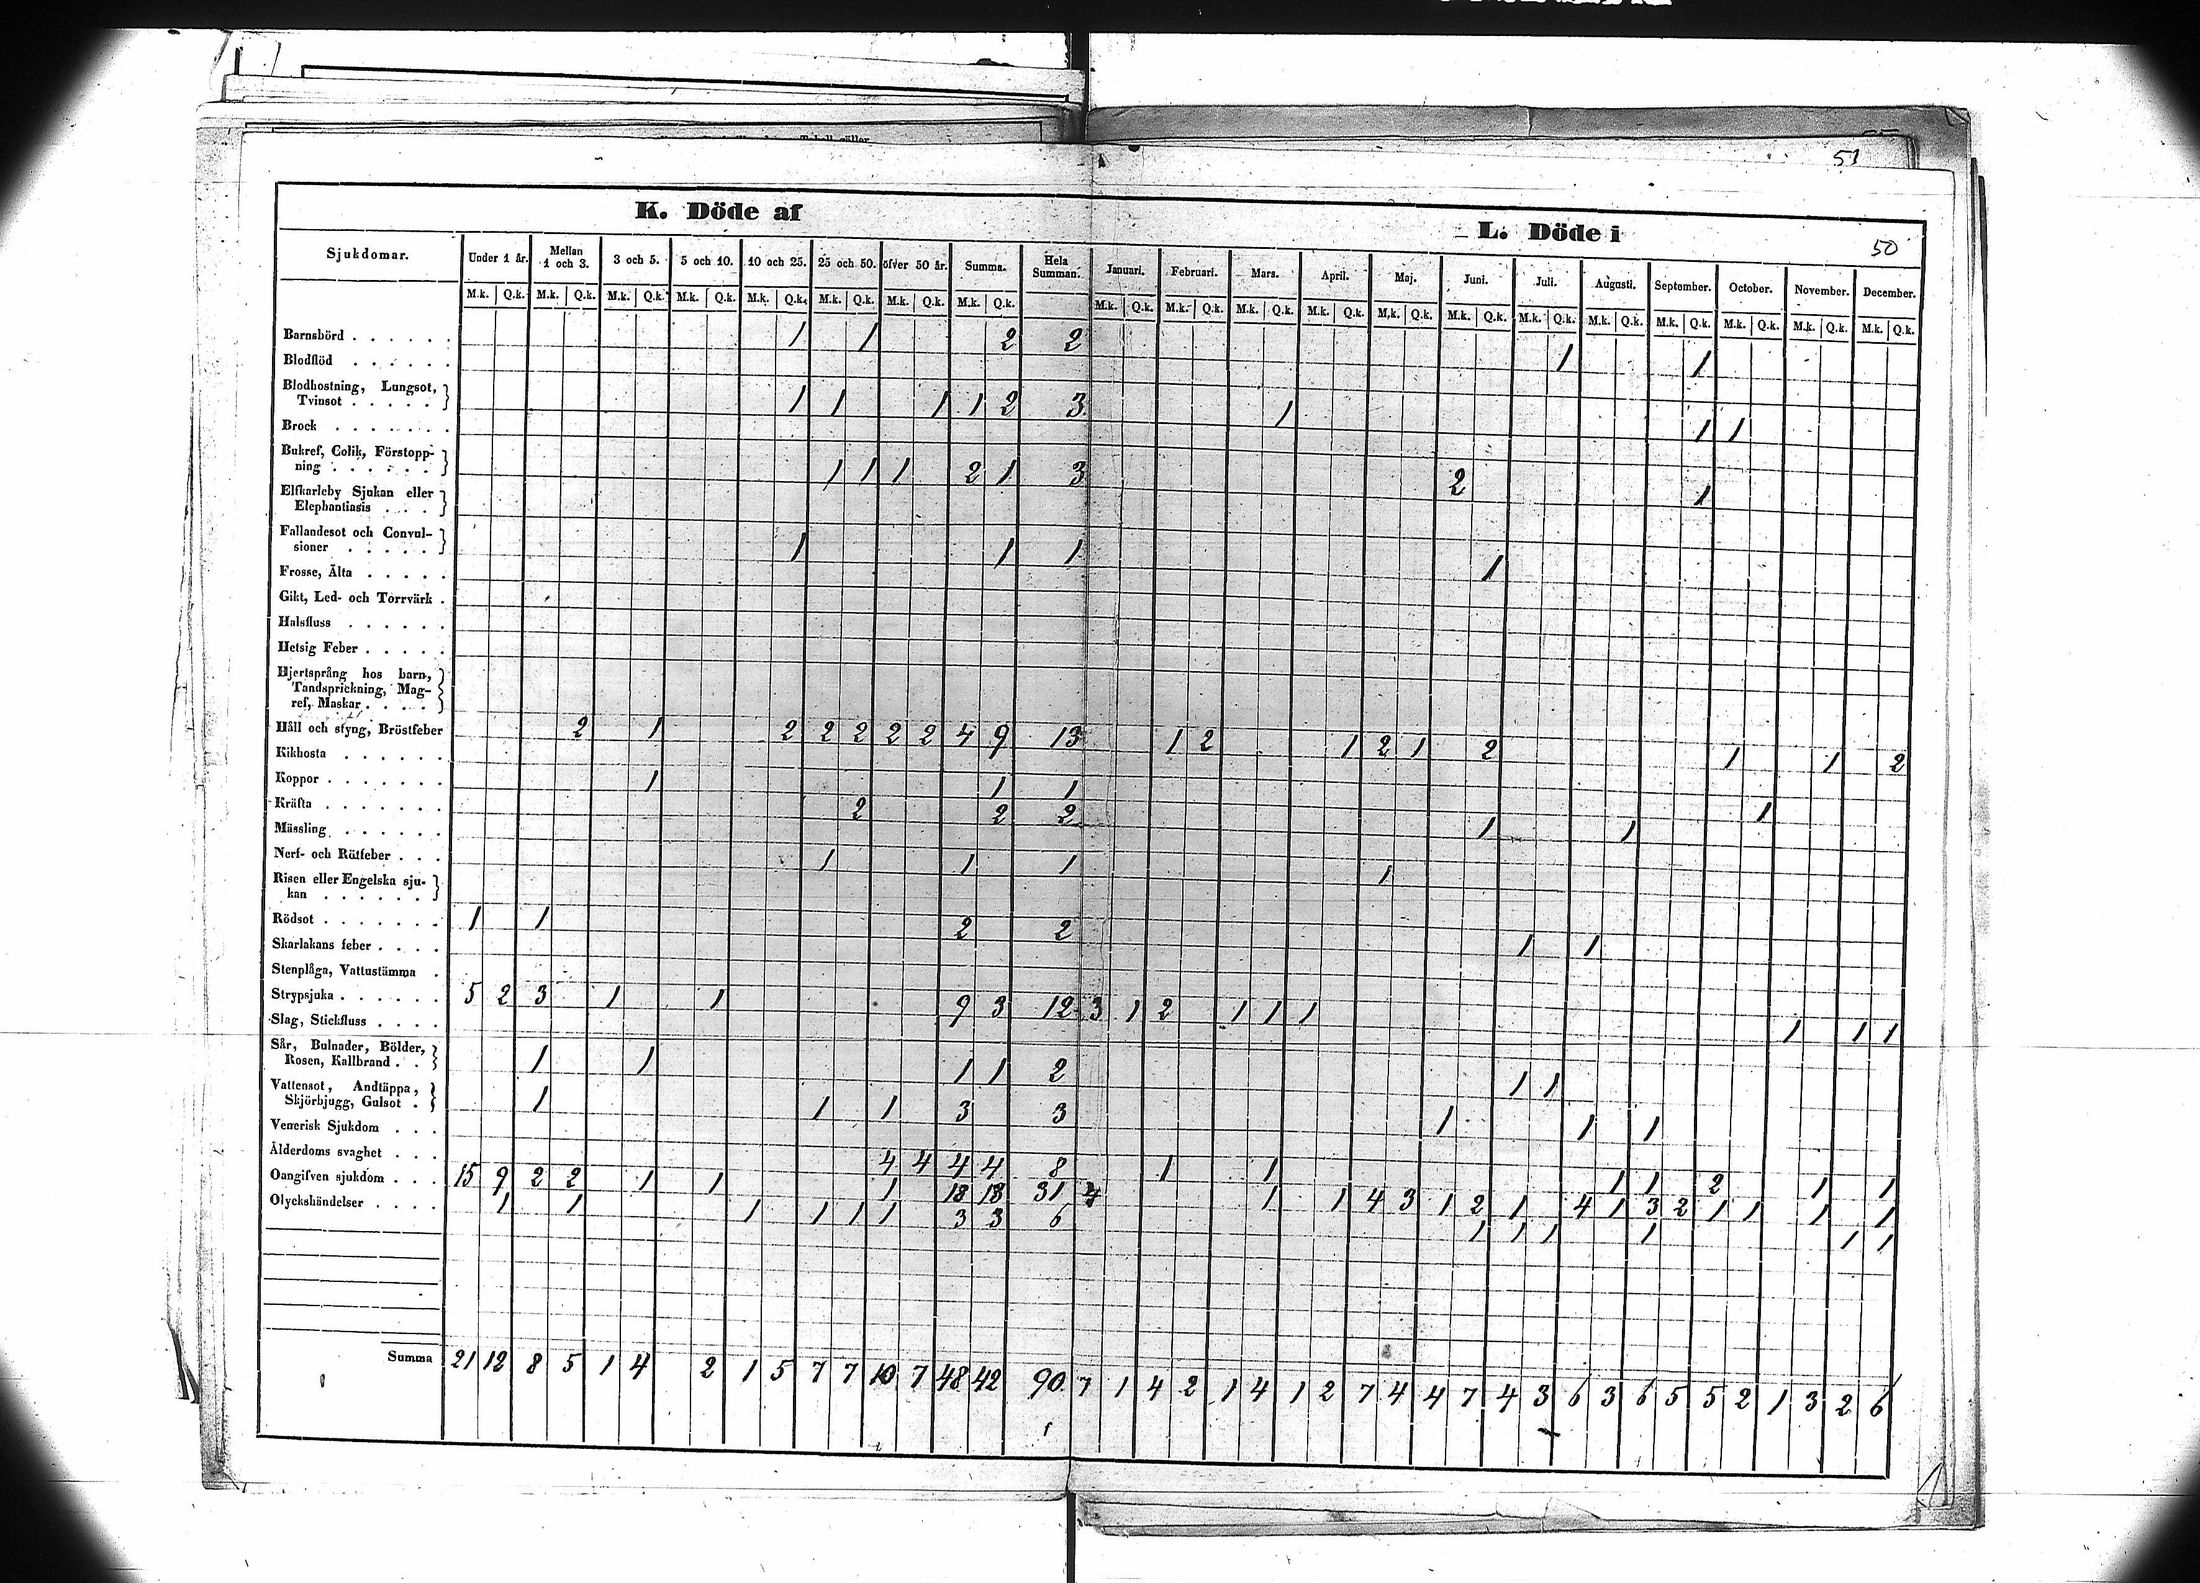 51
K. Döde af
L. Döde i
50
Sjukdomar. Under 1 år. Mellan 1 och 3. 3 och 5. 5 och 10. 10 och 25. 25 och 50. öfver 50 år. Summa. Hela Summan. Januari. Februari. Mars. April. Maj. Juni. Juli. Augusti. September. October. November. December.
M.k. Q.k. M.k. Q.k. M.k. Q.k. M.k. Q.k. M.k. Q.k. M.k. Q.k. M.k. Q.k. M.k. Q.k. M.k. Q.k. M.k. Q.k. M.k. Q.k. M.k. Q.k. M.k. Q.k. M.k. Q.k. M.k. Q.k. M.k. Q.k. M.k. Q.k. M.k. Q.k. M.k. Q.k. M.k. Q.k.
Barnsbörd . . . . . . 1 1 2 2 1 1
Blodflöd . . . . . .
Blodhostning, Lungsot,
Tvinsot . . . . . 1 1 1 1 2 3 1 1 1
Brock . . . . . . .
Bukref, Colik, Förstopp-
ning . . . . . . 1 1 1 2 1 3 2 1
Elfkarleby Sjukan eller
Elephantiasis . . . .
Fallandesot och Convul-
sioner . . . . . 1 1 1 1
Frosse, Älta . . . . .
Gikt, Led- och Torrvärk .
Halsfluss . . . . . .
Hetsig Feber . . . . .
Hjertsprång hos barn,
Tandsprickning, Mag-
ref, Maskar . . . .
Håll och styng, Bröstfeber 2 1 2 2 2 2 2 4 9 13 1 2 1 2 1 2 1 1 2
Kikhosta . . . . . .
Koppor . . . . . . . 1 1 1 1
Kräfta . . . . . . . 2 2 2 1 1
Mässling . . . . . .
Nerf- och Rötfeber . . . 1 1 1 1
Risen eller Engelska sju-
kan . . . . . .
Rödsot . . . . . . . 1 1 2 2 1 1
Skarlakans feber . . . .
Stenplåga, Vattustämma .
Strypsjuka . . . . . . 5 2 3 1 1 9 3 12 3 1 2 1 1 1 1 1 1
Slag, Stickfluss . . . .
Sår, Bulnader, Bölder,
Rosen, Kallbrand . . 1 1 1 1 2 1 1
Vattensot, Andtäppa,
Skjörbjugg, Gulsot . 1 1 1 3 3 1 1 1
Venerisk Sjukdom . . .
Ålderdoms svaghet . . . 4 4 4 4 8 1 1 1 1 2 1 1
Oangifven sjukdom . . . 15 9 2 2 1 1 1 18 13 31 4 1 1 4 3 1 2 1 4 1 3 2 1 1 1 1
Olyckshändelser . . . . 1 1 1 1 1 1 3 3 6 1 1 1 1 1 1
Summa 21 12 8 5 1 4 2 1 5 7 7 10 7 48 42 90 7 1 4 2 1 4 1 2 7 4 4 7 4 3 6 3 6 5 5 2 1 3 2 6